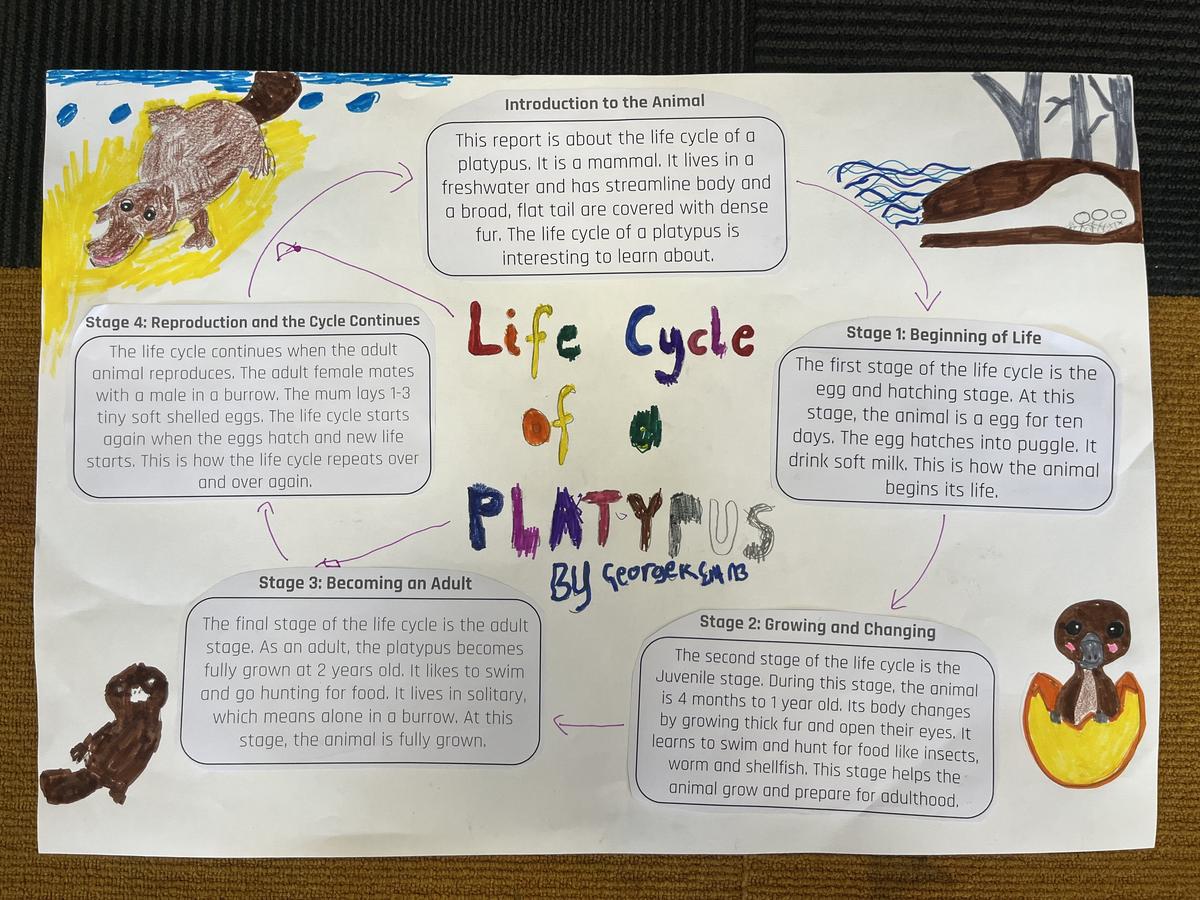 Introduction to the Animal
This report is about the life cycle of a
platypus. It is a mammal. It lives in a
freshwater and has streamline body and
a broad, flat tail are covered with dense
fur. The life cycle of a platypus is
interesting to learn about.
Life Cycle
of a
PLATYPUS
BY GeorgeK
Stage 1: Beginning of Life
The first stage of the life cycle is the
egg and hatching stage. At this
stage, the animal is a egg for ten
days. The egg hatches into puggle. It
drink soft milk. This is how the animal
begins its life.
Stage 2: Growing and Changing
The second stage of the life cycle is the
Juvenile stage. During this stage, the animal
is 4 months to 1 year old. Its body changes
by growing thick fur and open their eyes. It
learns to swim and hunt for food like insects,
worm and shellfish. This stage helps the
animal grow and prepare for adulthood.
Stage 3: Becoming an Adult
The final stage of the life cycle is the adult
stage. As an adult, the platypus becomes
fully grown at 2 years old. It likes to swim
and go hunting for food. It lives in solitary,
which means alone in a burrow. At this
stage, the animal is fully grown.
Stage 4: Reproduction and the Cycle Continues
The life cycle continues when the adult
animal reproduces. The adult female mates
with a male in a burrow. The mum lays 1-3
tiny soft shelled eggs. The life cycle starts
again when the eggs hatch and new life
starts. This is how the life cycle repeats over
and over again.